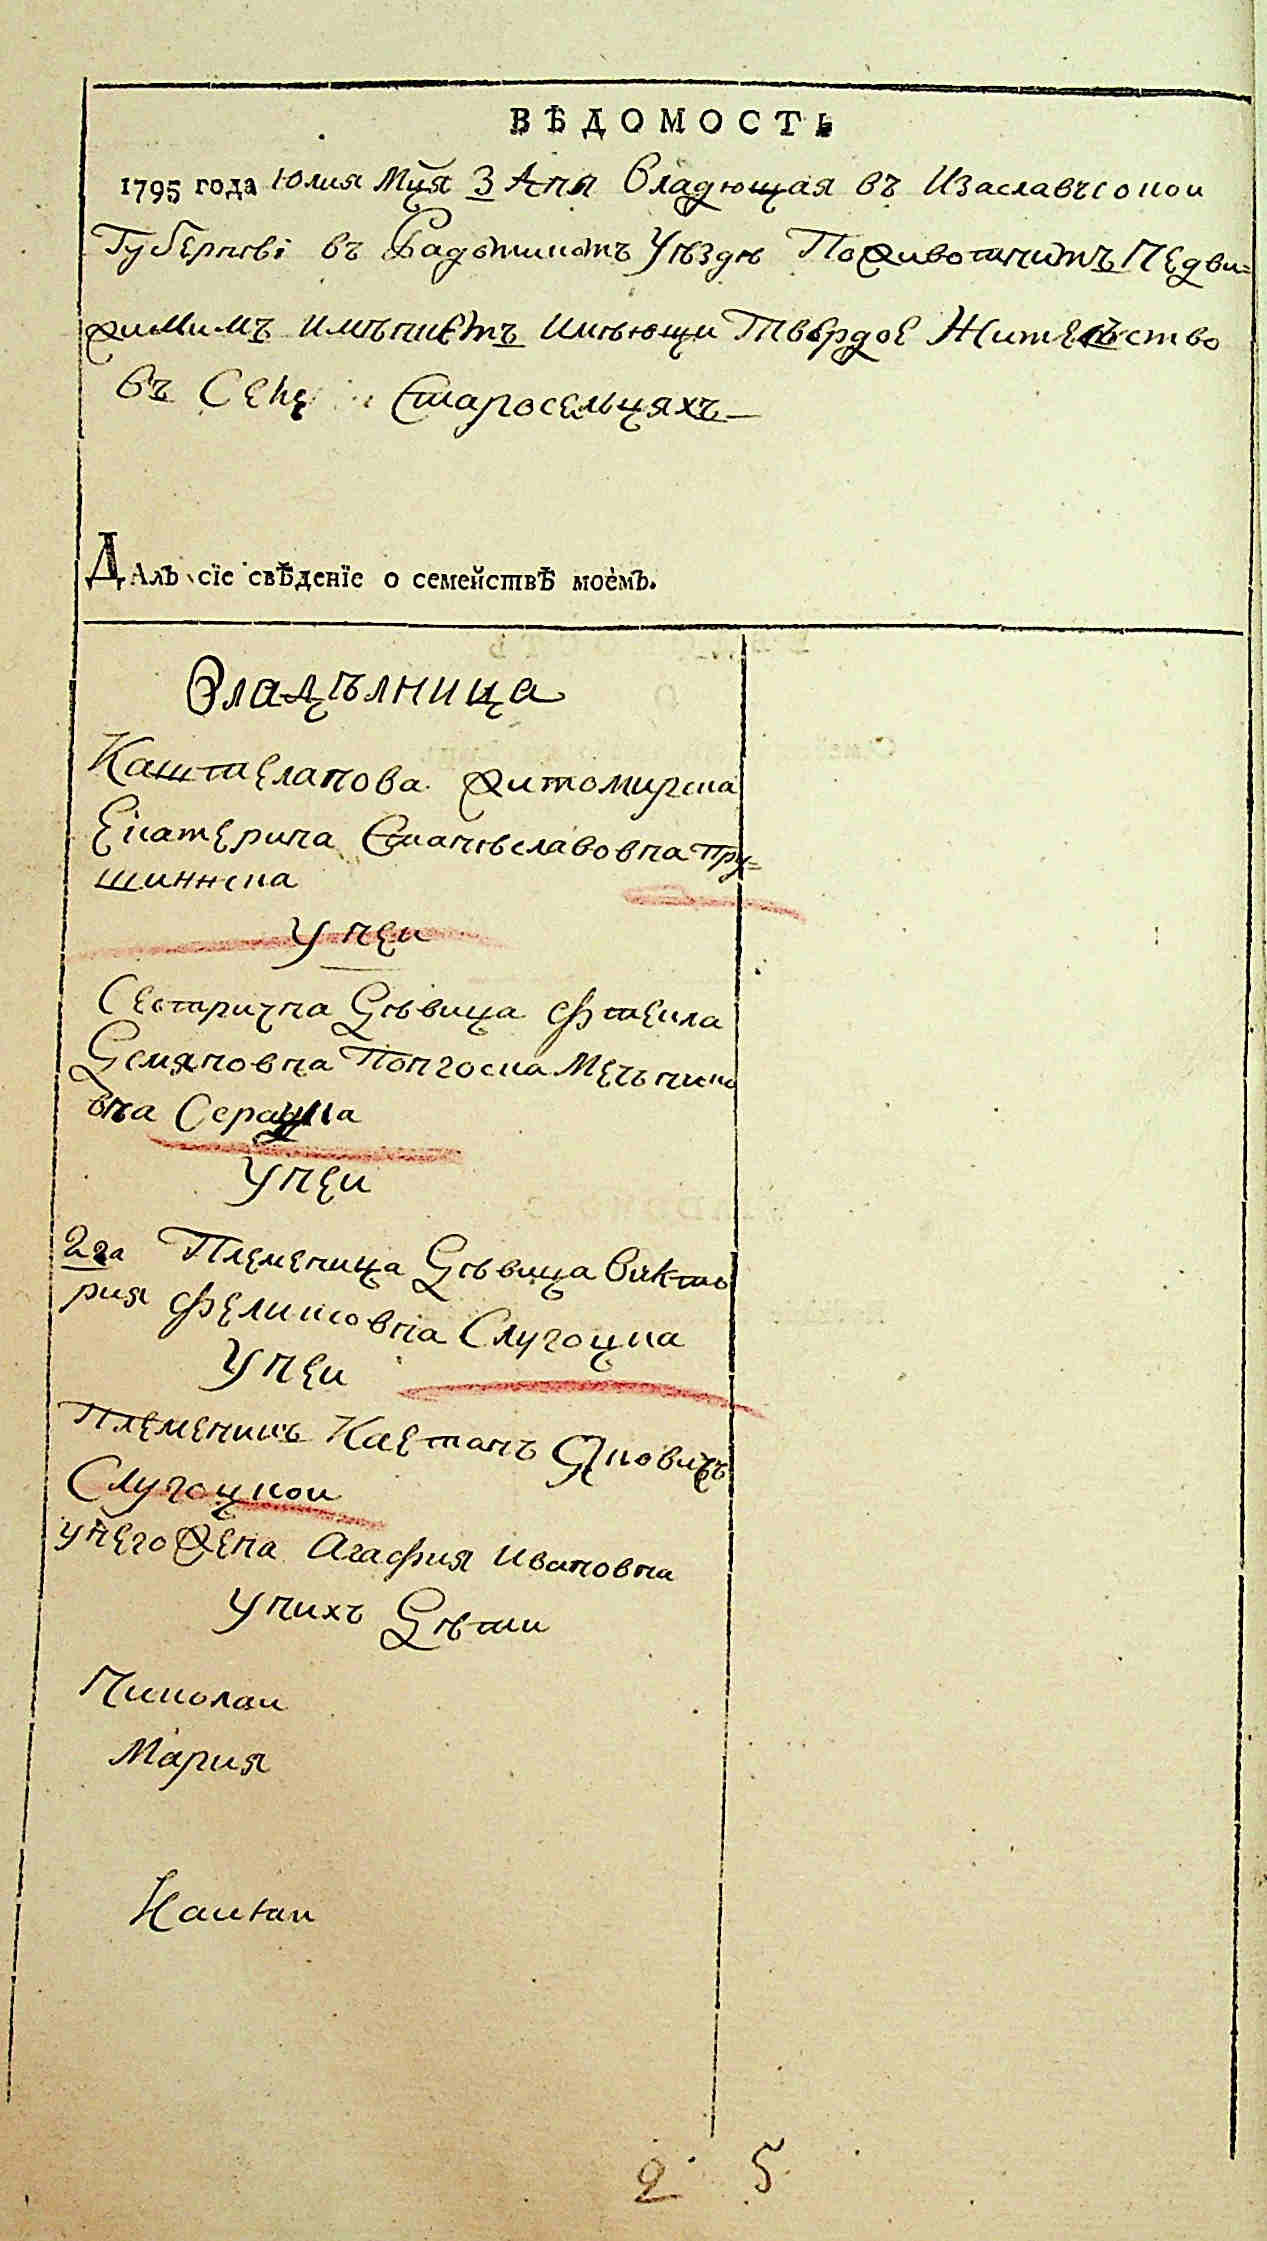 ВѢДОМОСТЬ
1795 года Юлия Мця 3 Дня Владующая въ Изаславъской
Губернѣі въ Уѣздѣ Поживотнимъ Недви=
жимимъ имѣниемъ имѣющи Твердое Жителство
въ Селе Старосельцяхъ
Далъ сїе свѣденїе о семействѣ моемъ.
Владѣлница
Каштелянова житомирска
Екатерина Станѣславовна Пру=
шиннска
У неи
Сестрична Дѣвица Фтеила
Демяновна Понговска Мечнико
вна
У неи
2га Племеница Дѣвица Викто
рия Феликсовна Слугоцка
У неи
Племеникъ Каетанъ
Слугоцкой
у него Жена Агафия Ивановна
У нихъ Дѣти
Николаи
Мария
2 5